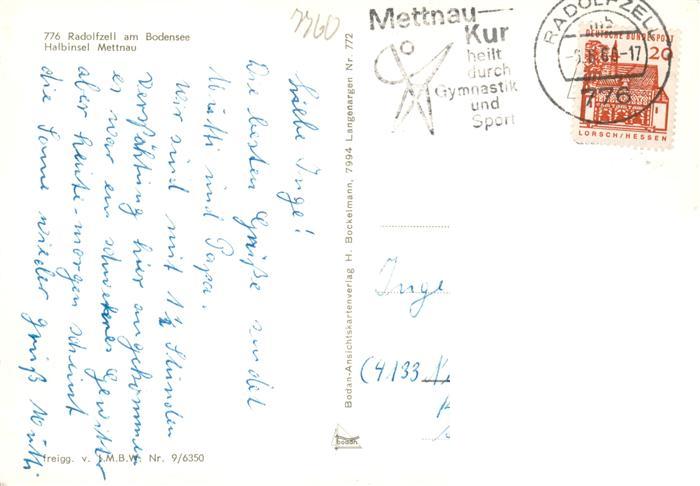 776 Radolfzell am Bodensee
Halbinsel Mettnau
7760
Liebe Inge!
Die besten Grüße sendet
Mutti und Papa.
Wir sind mit 1½ Stunden
Verspähtung hier angekommen
es war ein schweres Gewitter
aber heute-morgen scheint
die Sonne wieder gruß Mutti.
freigg. v. I.M.B.W. Nr. 9/6350
Bodan-Ansichtskartenverlag H. Bockelmann, 7994 Langenargen Nr. 772
bodan
Mettnau-
Kur
heilt
durch
Gymnastik
und
Sport
RADOLFZELL
-17
776
DEUTSCHE BUNDESPOST
20
LORSCH/HESSEN
Inge
(4133